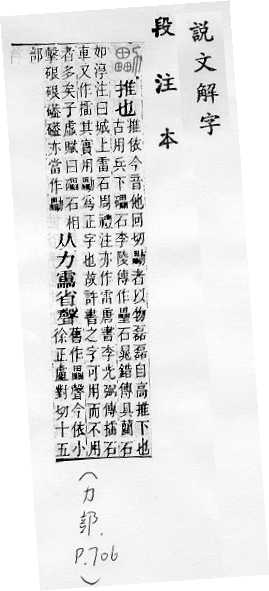 說文解字
段注本
推也
推依今音他回切者以物磊磊自高推下也
古用兵下礧石李陵傳作壘石鼂錯傳具藺石
如淳注曰城上雷石周禮注亦作雷唐書李光弼傳擂石
車又作擂其實用爲正字也故許書之字可用而不用
者多矣子虛賦曰礧石相
擊硠硠礚礚亦當作
从力靁省聲
舊作畾聲今依小
徐正盧對切十五
部
(力部.P.706)